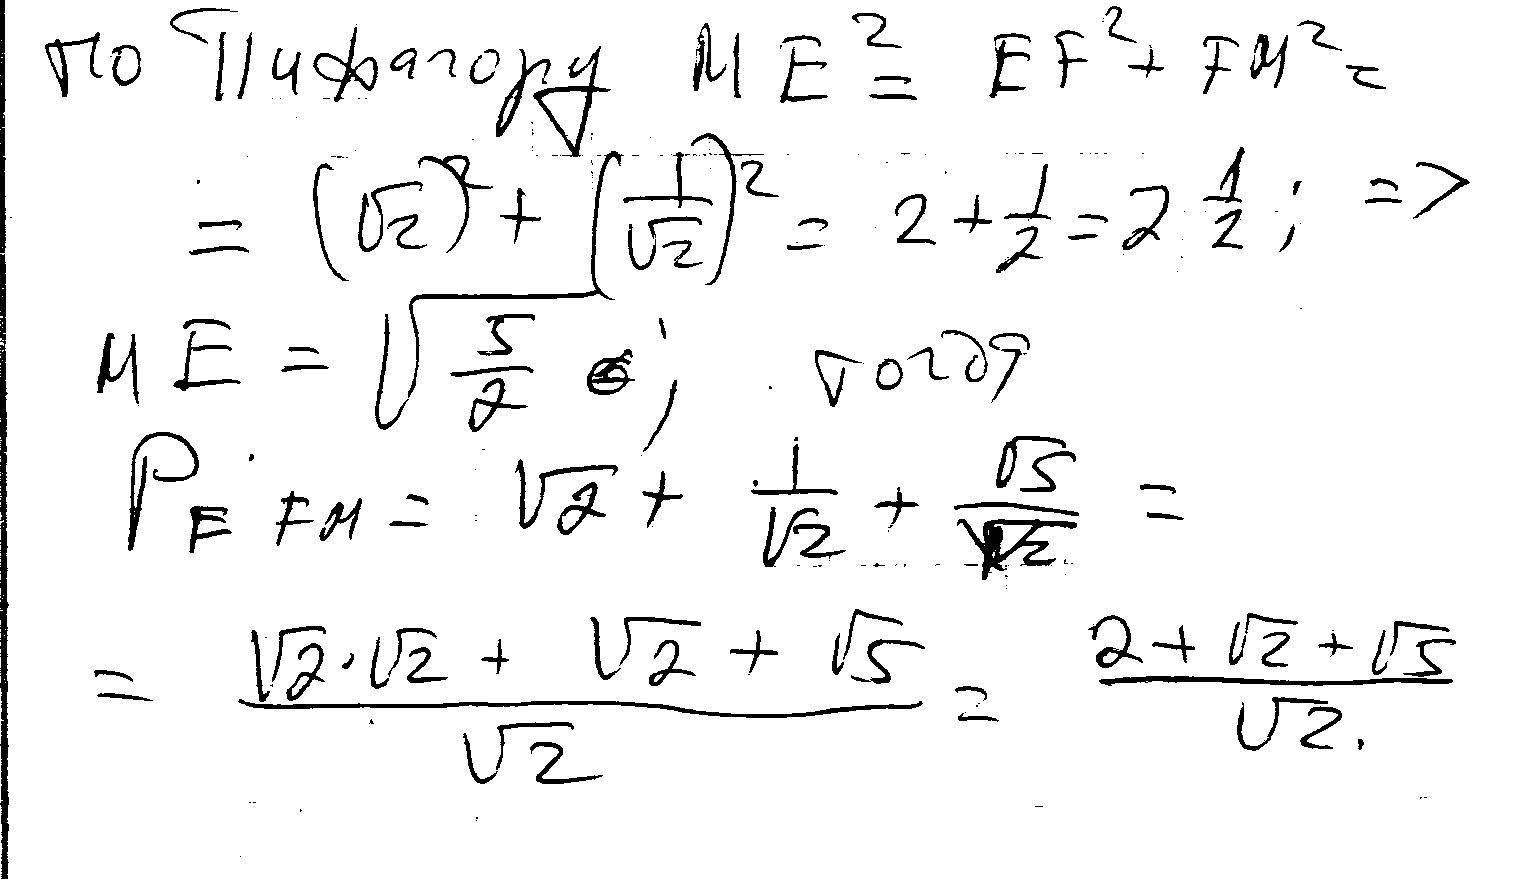 по Пифагору ME² = EF² + FM² =
= (√2)² + (1/√2)² = 2 + 1/2 = 2 1/2 ; =>
ME = √(5/2) ; тогда
P_EFM = √2 + 1/√2 + √5/√2 =
= (√2·√2 + √2 + √5)/√2 = (2 + √2 + √5)/√2.